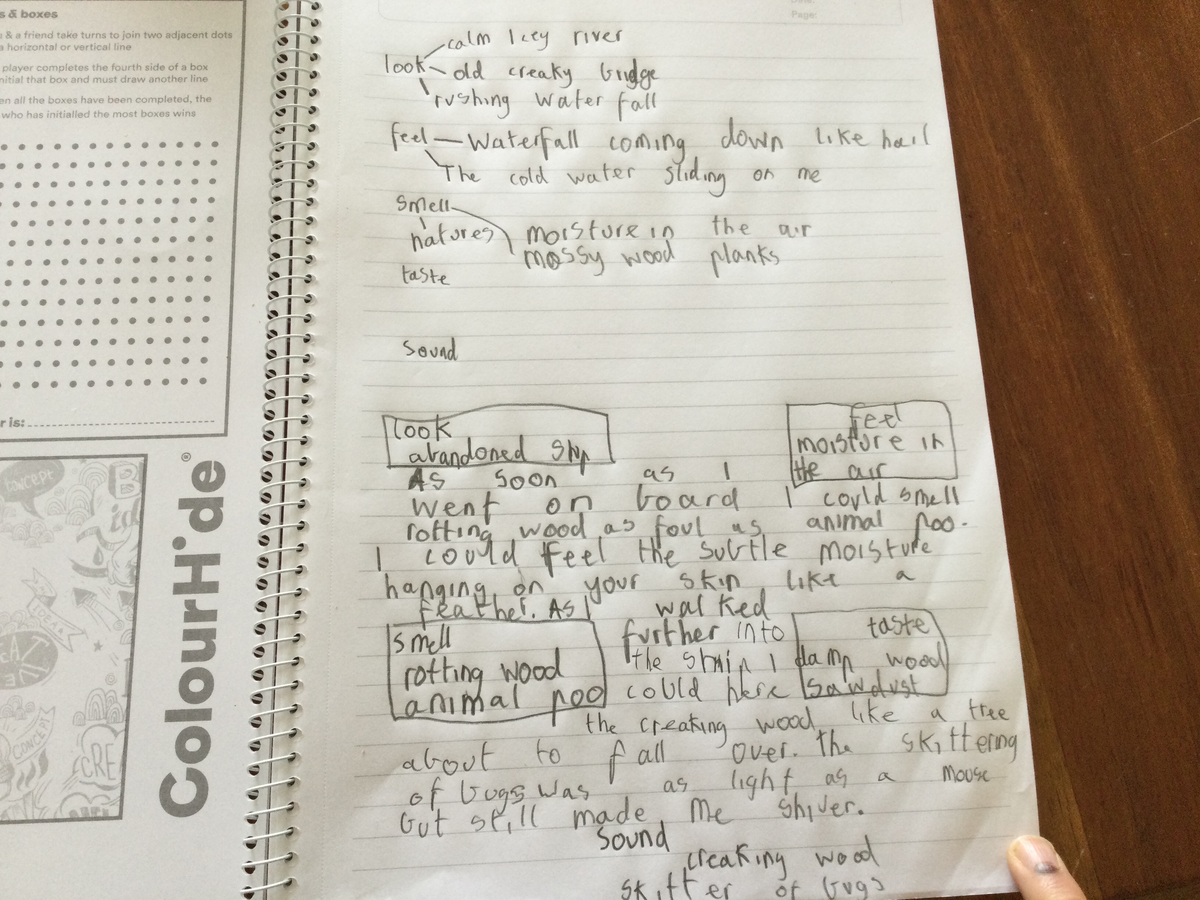 s & boxes
& a friend take turns to join two adjacent dots
a horizontal or vertical line
player completes the fourth side of a box
initial that box and must draw another line
en all the boxes have been completed, the
who has initialled the most boxes wins
r is:
ColourHide®
CONCEPT
CRE
Page:
calm Icey river
look
old creaky bridge
rushing water fall
feel — Waterfall coming down like hail
The cold water sliding on me
smell
natures
moisture in the air
mossy wood planks
taste
sound
look
abandoned ship
feel
moisture in
the air
As soon as I
went on board I could smell
rotting wood as foul as animal poo.
I could feel the subtle moisture
hanging on your skin like a
feather. As I walked
smell
rotting wood
animal poo
further into
the ship I
could here
taste
damp wood
sawdust
the creaking wood like a tree
about to fall over. the skittering
of bugs was as light as a mouse
but still made me shiver.
sound
creaking wood
skitter of bugs